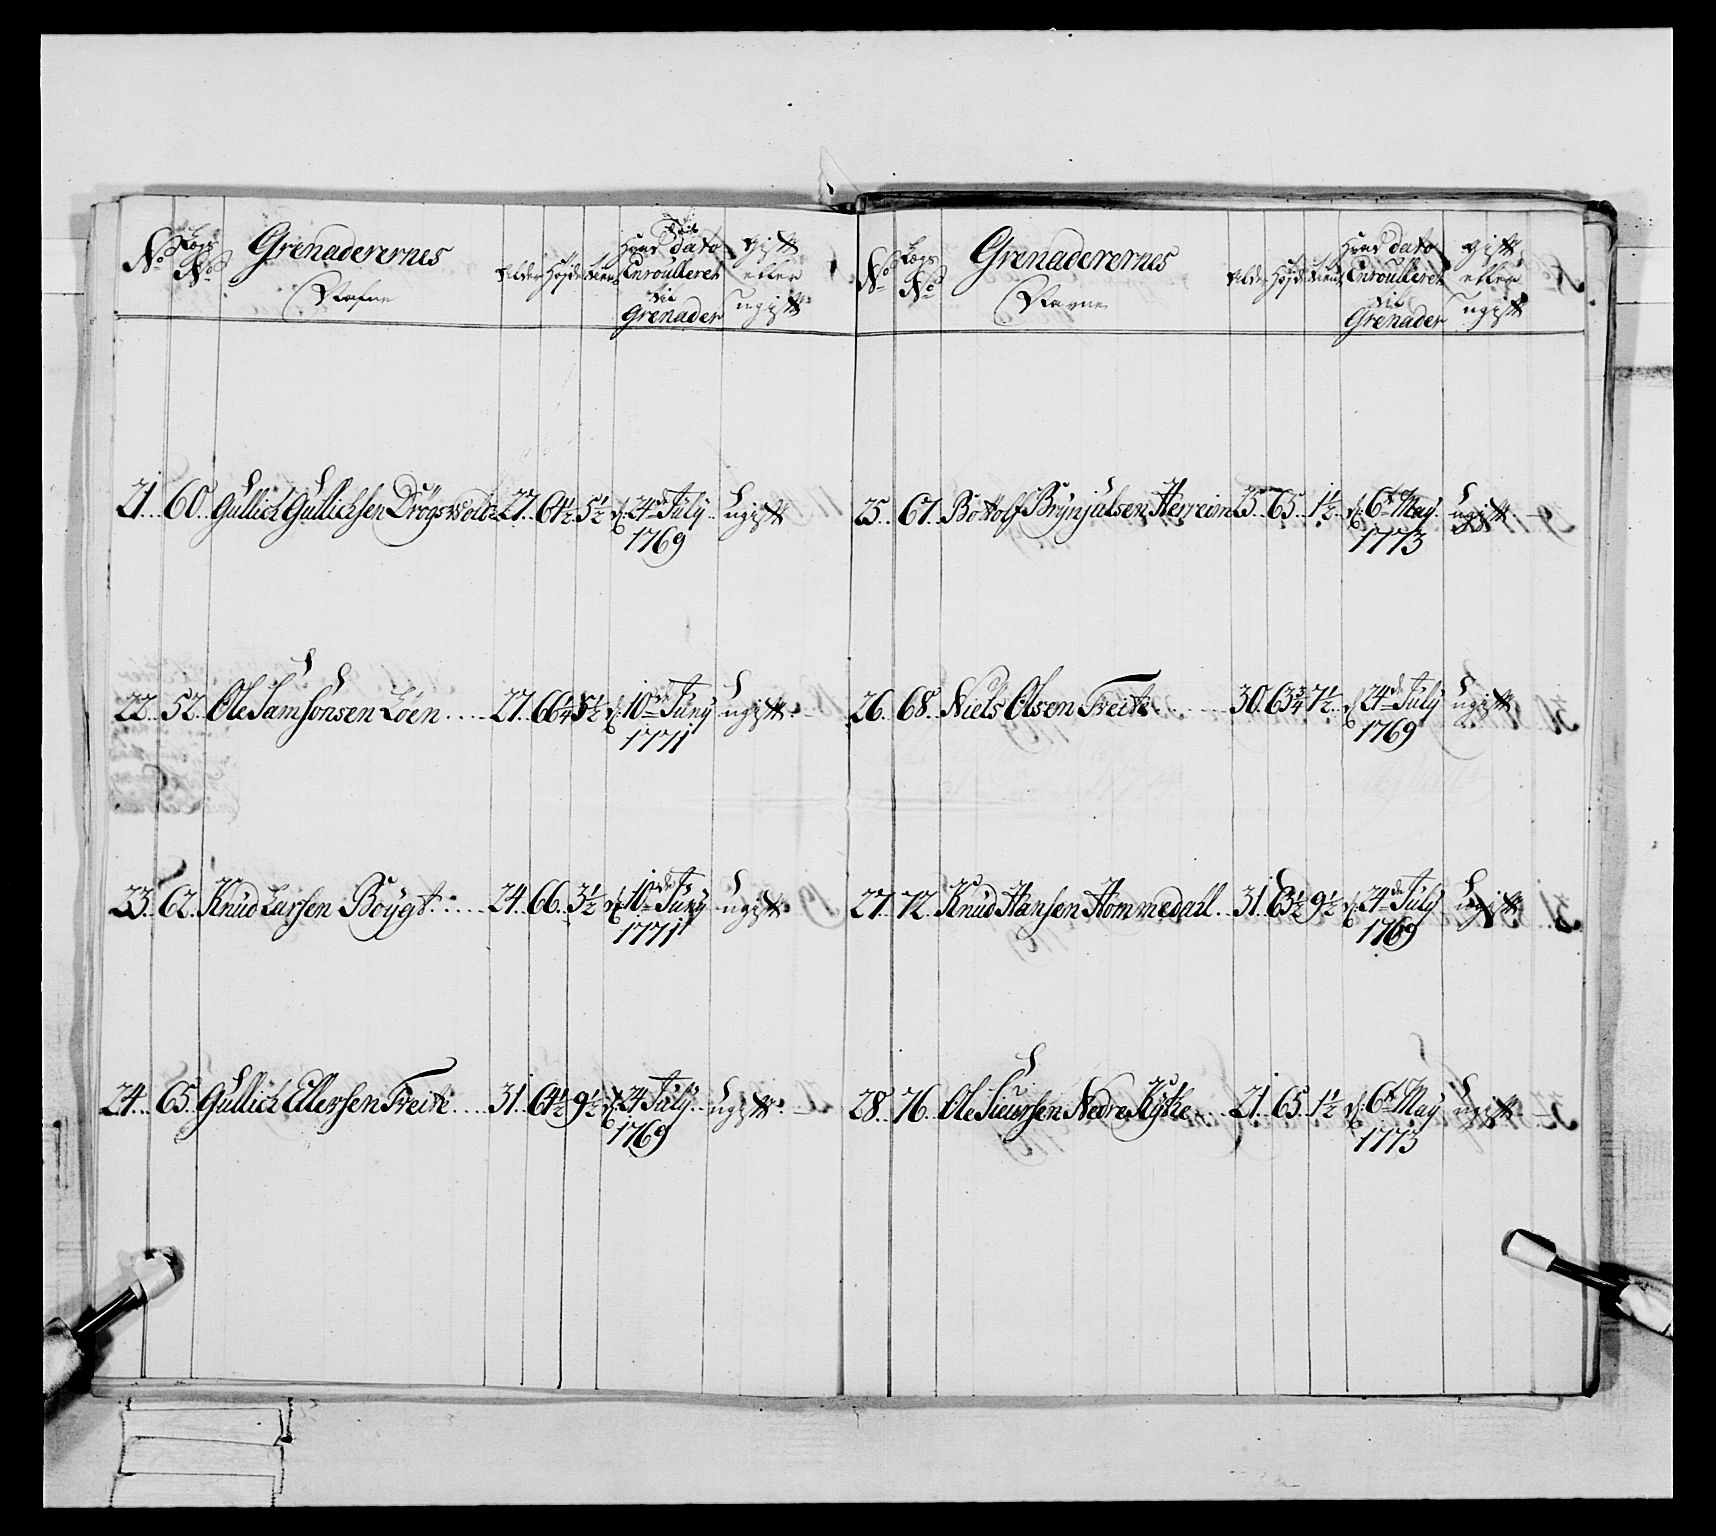 No
Lægs No
Grenaderernes
Nafne
Alder
Høyde
Tieniste
Hvad dato
Enroulleret
til
Grenader
gift
eller
ugift
21. 60. Gullich Gullichsen Drögsvold 27. 64½ 5½ d. 24de July ugift
1769
22. 52. Ole Samsonsen Löen .... 27. 66¼ 5½ d. 10de Juny ugift
1771
23. 62. Knud Larsen Böygt .... 24. 66. 3½ d. 10de Juny ugift
1771
24. 65. Gullich Ellersen Freite .... 31. 64½ 9½ d. 24 July ugift
1769
No
Lægs No
Grenaderernes
Navne
Alder
Høyde
Tieniste
Hvad dato
Enroulleret
til
Grenader
gift
eller
ugift
25. 67. Bottolf Brynjulsen Herreim 25. 65. 1½ d. 6te May ugift
1773
26. 68. Niels Olsen Freite .... 30. 63¾ 7½ d. 24de July ugift
1769
27. 72. Knud Hansen Hommedall. 31. 63½ 9½ d. 24de July ugift
1769
28. 76. Ole Siursen Nedre Kytke .... 21. 65. 1½ d. 6te May ugift
1773